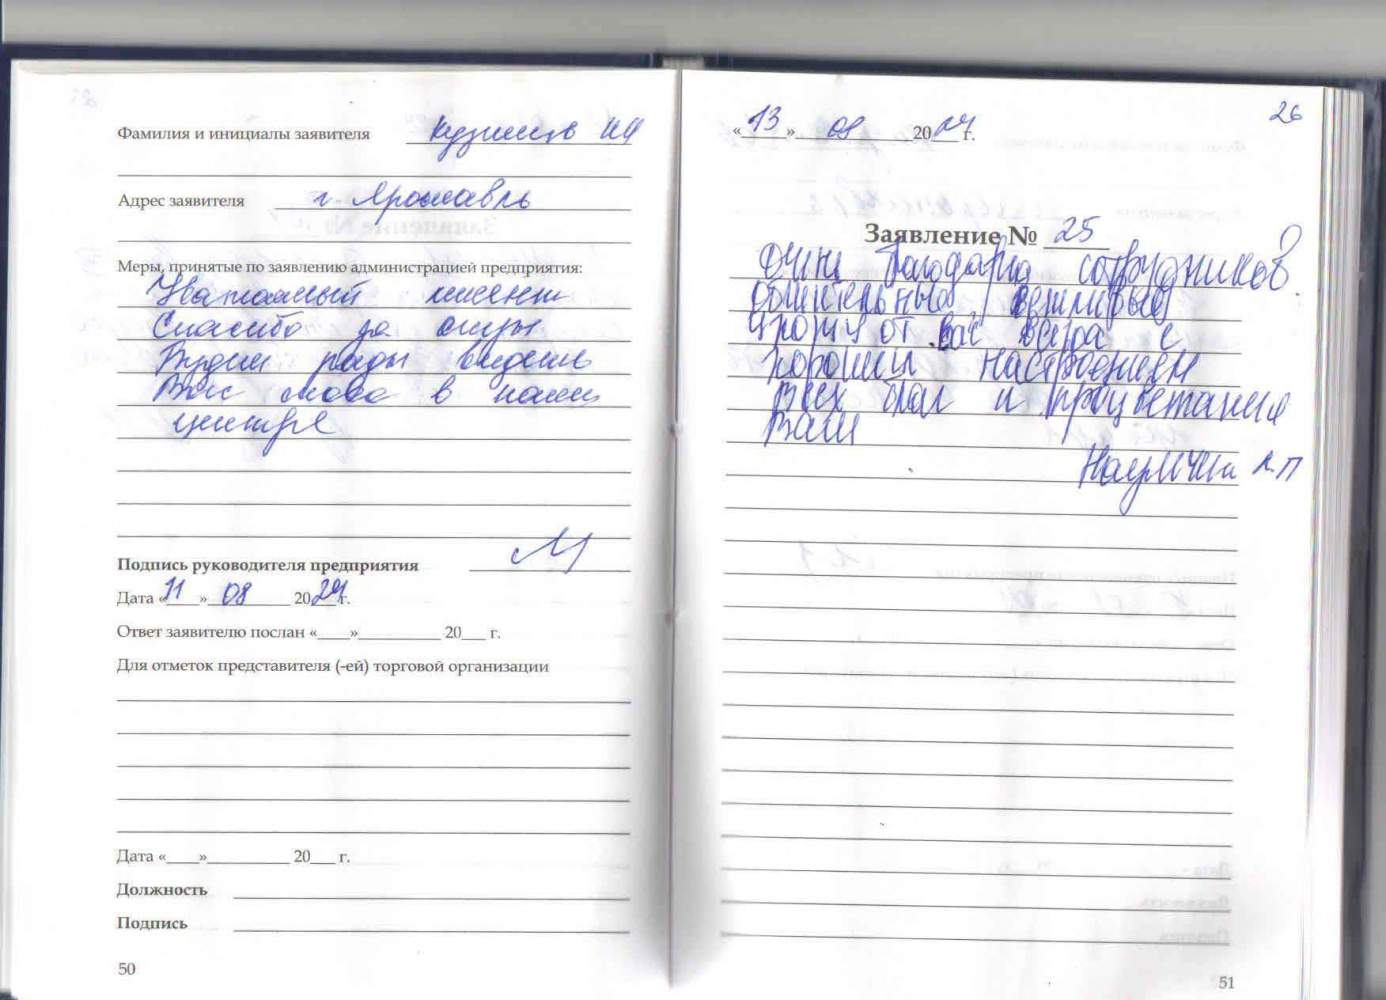 Фамилия и инициалы заявителя Кузнецов
Адрес заявителя г. Ярославль
Меры, принятые по заявлению администрацией предприятия:
Уважаемый клиент
Спасибо за отзыв.
Будем рады видеть
Вас снова в нашем
центре
Подпись руководителя предприятия
Дата «11» 08 2024 г.
Ответ заявителю послан «____»__________ 20___ г.
Для отметок представителя (-ей) торговой организации
Дата «____»__________ 20___ г.
Должность
Подпись
50
26
«13» 08 2024 г.
Заявление № 25
Очень благодарна сотрудников
вежливые
ухожу от вас всегда с
хорошим настроением
Всех благ и процветания
Вам
Л.П
51